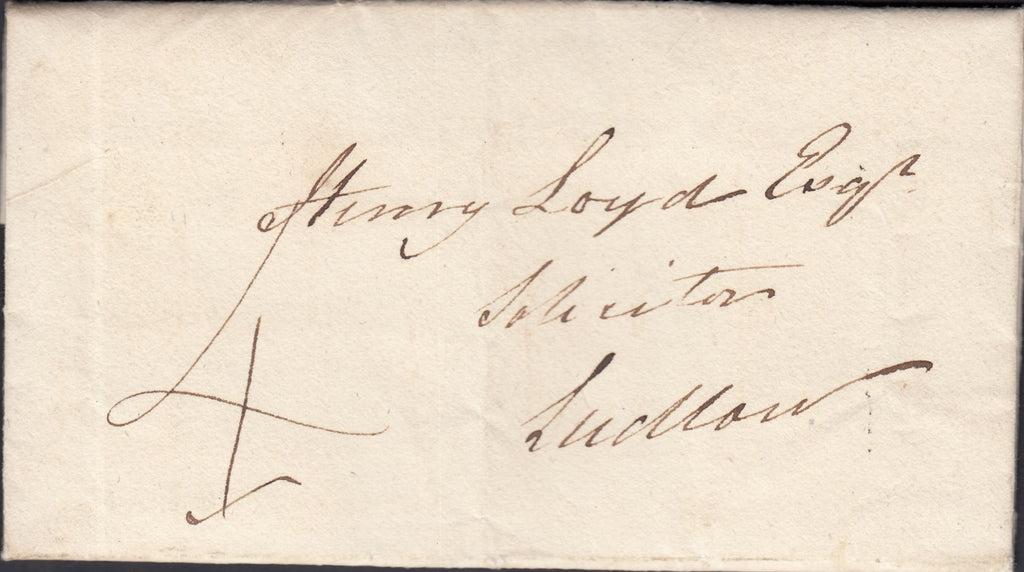 Henry Loyd Esqr.
Solicitor
Ludlow
4